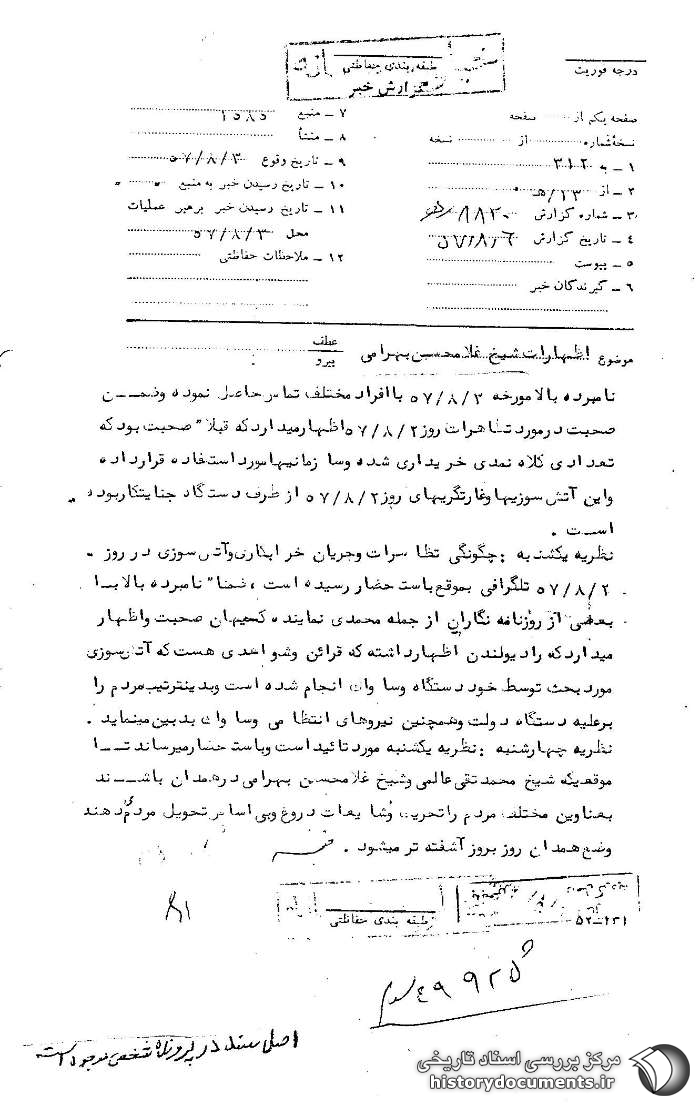 طبقه بندی حفاظتی
گزارش خبر
درجه فوریت
صفحه یکم از صفحه
نسخه شماره از نسخه
۱ – به ۳۱۲
۲ – از ۲۳/هـ
۳ – شماره گزارش ۸۸۲۰
۴ – تاریخ گزارش ۵۷/۸/۶
۵ – پیوست
۶ – گیرندگان خبر
۷ – منبع ۱۵۸۵
۸ – منشأ
۹ – تاریخ وقوع ۵۷/۸/۳
۱۰ – تاریخ رسیدن خبر به منبع
۱۱ – تاریخ رسیدن خبر برهبر عملیات
محل ۵۷/۸/۳
۱۲ – ملاحظات حفاظتی
موضوع اظهارات شیخ غلامحسین بهرامی
عطف
پیرو
نامبرده بالا مورخه ۵۷/۸/۳ با افراد مختلف تماس حاصل نموده وضمـــن
صحبت در مورد تظاهرات روز ۵۷/۸/۲ اظهار میدارد که قبلا" صحبت بود که
تعدادی کلاه نمدی خریداری شده وسا زمانیها مورد استفاده قرار داده
واین آتش سوزیها وغارتگریهای روز ۵۷/۸/۲ از طرف دستگاه جنایتکار بوده
اســت .
نظریه یکشنبه : چگونگی تظاهرات وجریان خرابکاری وآتش سوزی در روز
۵۷/۸/۲ تلگرافی بموقع باستحضار رسیده است ، ضمنا" نامبرده بالا بـا
بعضی از روزنامه نگاران از جمله محمدی نماینده کیهان صحبت واظهار
میدارد که رادیو لندن اظهار داشته که قرائن وشواهدی هست که آتش سوزی
مورد بحث توسط خود دستگاه وساواک انجام شده است وبدینترتیب مردم را
برعلیه دستگاه دولت وهمچنین نیروهای انتظامی وساواک بدبین مینماید .
نظریه چهارشنبه : نظریه یکشنبه مورد تائید است وباستحضار میرساند تــا
موقعیکه شیخ محمد تقی عالمی وشیخ غلامحسین بهرامی در همدان باشـــند
بعناوین مختلف مردم را تحریک وشایعات دروغ وبی اساس تحویل مردم میدهند
وضع همدان روز بروز آشفته تر میشود .
طبقه بندی حفاظتی
۵۲-۱۳۱
۸۱
۴۹۹۲۵
اصل سند در پرونده شخص موجود است
مرکز بررسی اسناد تاریخی
historydocuments.ir